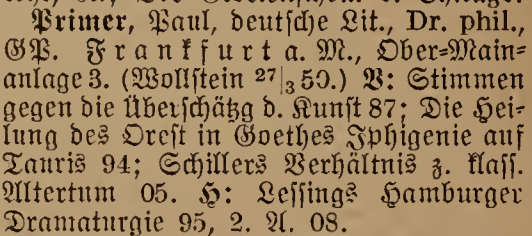 Primer, Paul, deutsche Lit., Dr. phil.,
GP. Frankfurt a. M., Ober-Main-
anlage 3. (Wollstein 27|3 50.) V: Stimmen
gegen die Überschätzg d. Kunst 87; Die Hei-
lung des Orest in Goethes Iphigenie auf
Tauris 94; Schillers Verhältnis z. klass.
Altertum 05. H: Lessings Hamburger
Dramaturgie 95, 2. A. 08.